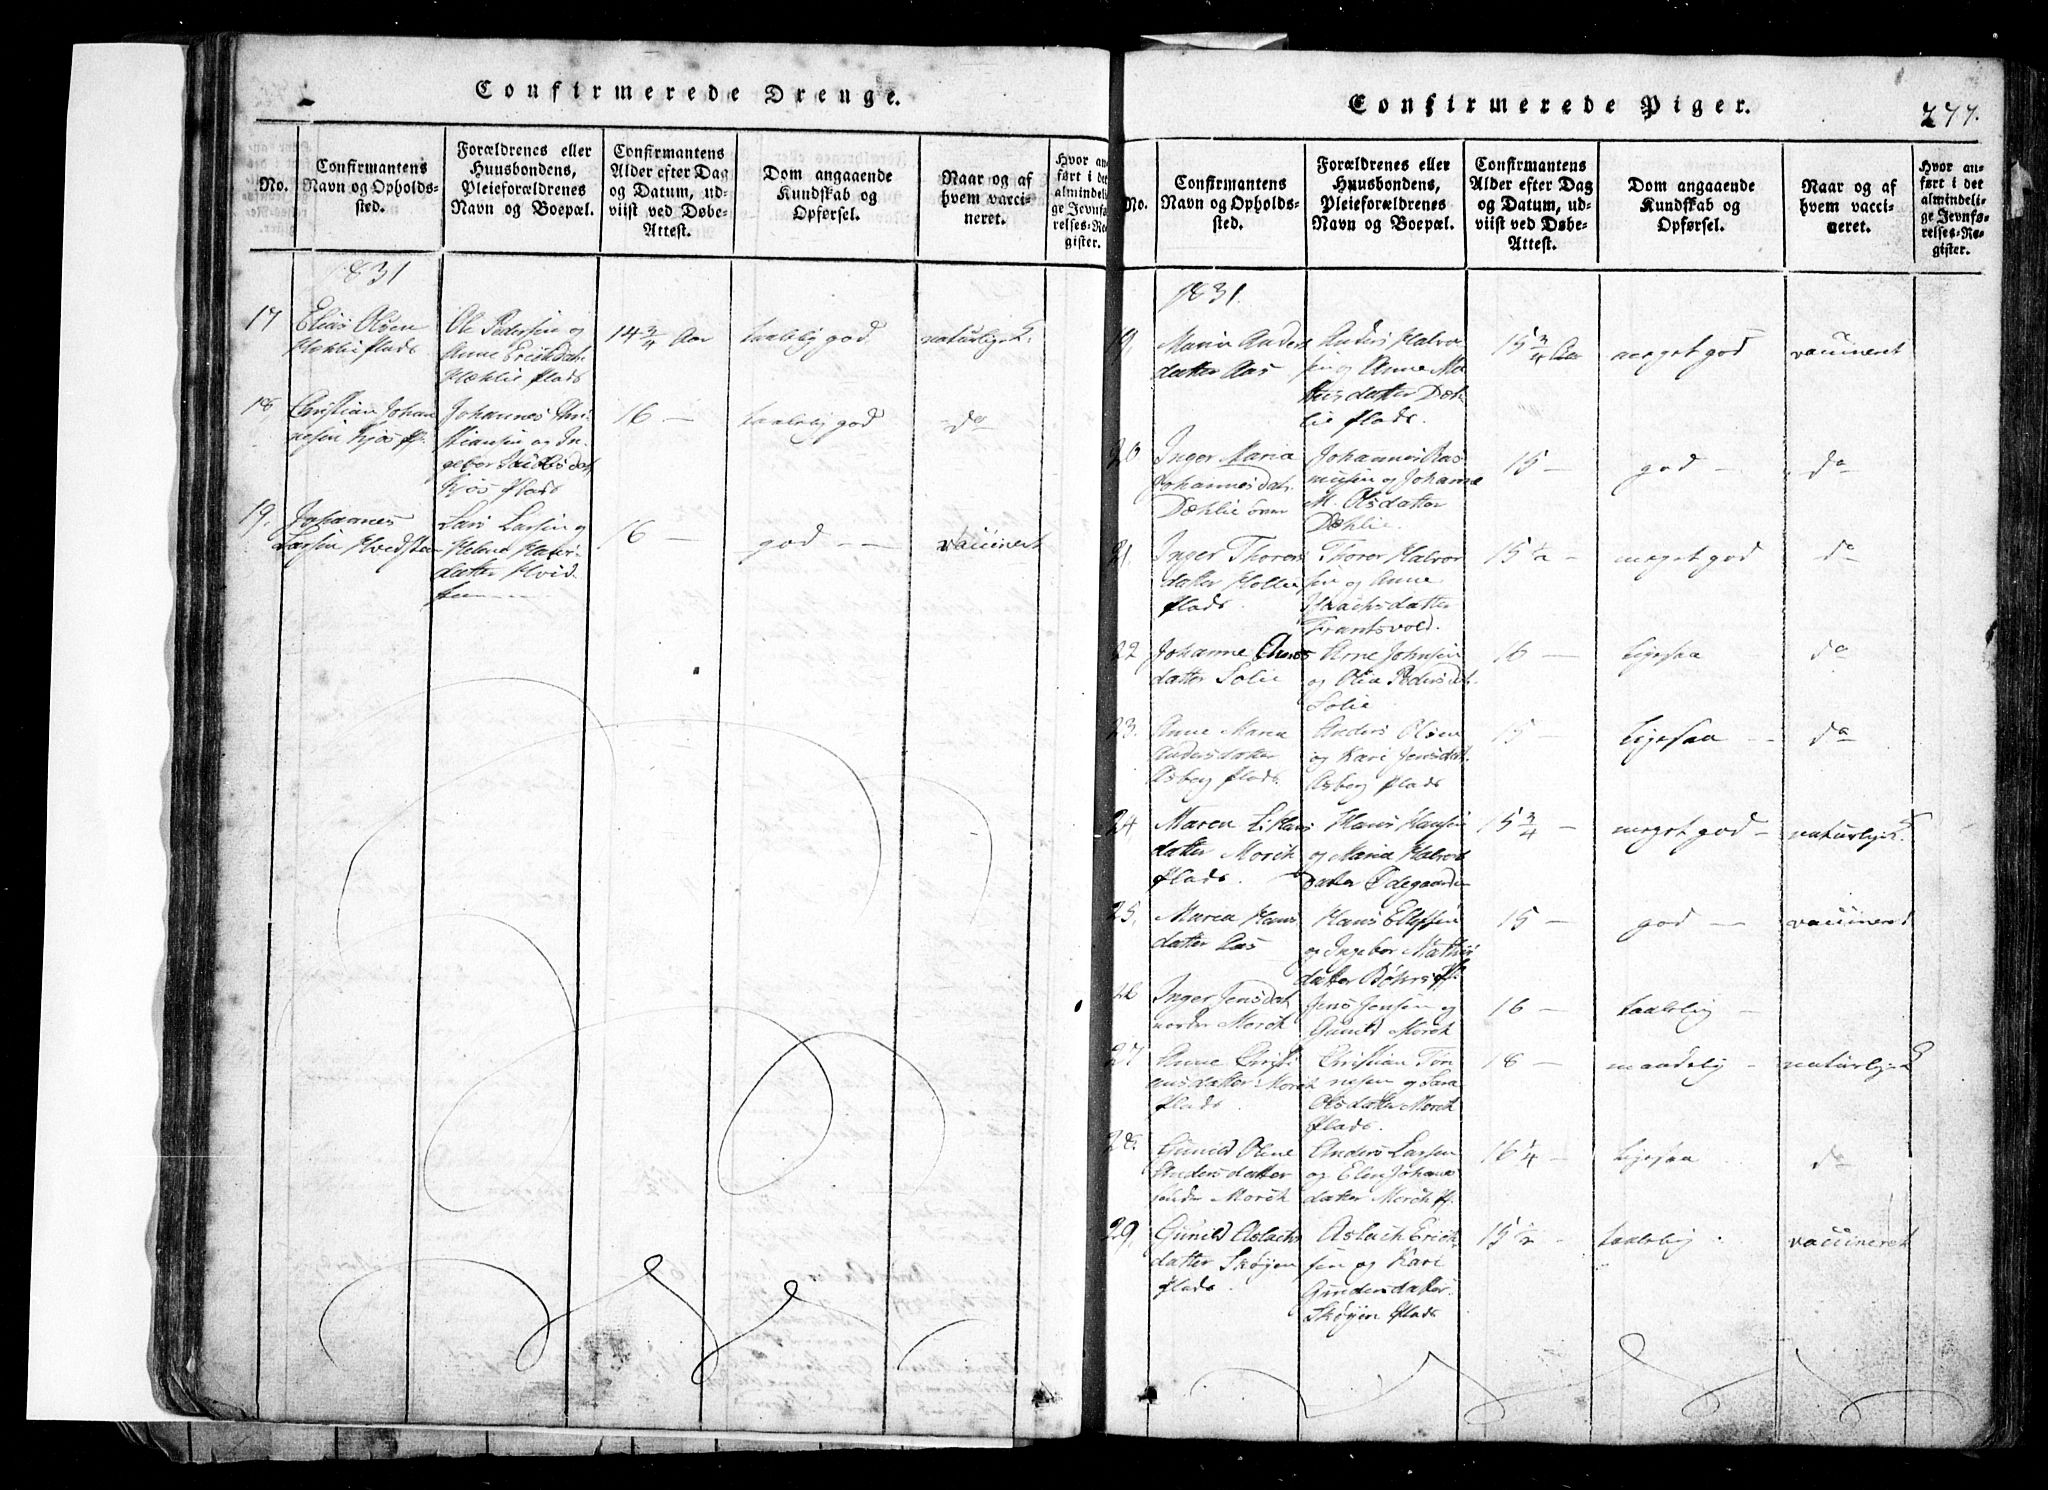 Confirmerede Drenge.
No.
Confirmantens
Navn og Opholds-
sted.
Forældrenes eller
Huusbondens,
Pleieforældrenes
Navn og Boepæl.
Confirmantens
Alder efter Dag
og Datum, ud-
viist ved Døbe-
Attest.
Dom angaaende
Kundskab og
Opførsel.
Naar og af
hvem vacci-
neret.
Hvor an-
ført i det
almindeli-
ge Jevnfø-
relses-Re-
gister.
1831
17
Elias Olsen
Hæhlie Plads
Ole Pedersen og
Anne Erichdat.
Hæhlie Plads
14 3/4 Aar
taalelig god
naturlige K:
18
Christian Johan
nesen Kjos Pl.
Johannes Chri-
stiansen og In-
gebor Jacobsdat.
Kjos Plads
16 —
taalelig god
do
19.
Johannes
Larsen Hvidsten
Lars Larsen og
Helene
datter Hvid
sten
16 —
god —
vaccineret
Confirmerede Piger.
277.
No.
Confirmantens
Navn og Opholds-
sted.
Forældrenes eller
Huusbondens,
Pleieforældrenes
Navn og Boepæl.
Confirmantens
Alder efter Dag
og Datum, ud-
viist ved Døbe-
Attest.
Dom angaaende
Kundskab og
Opførsel.
Naar og af
hvem vacci-
neret.
Hvor an-
ført i det
almindeli-
ge Jevnfø-
relses-Re-
gister.
1831.
19.
Maria Anders
datter Aas
Anders Halvor
sen og Anne Ma
thisdatter Dæh
lie Plads.
15 3/4 Aar
meget god
vaccineret
20
Inger Maria
Johannesdat.
Dæhlie øvre
Johannes Ras
musen og Johanne
M. Olsdatter
Dæhlie.
15 —
god —
do
21.
Inger Thorers
datter Hollie
Plads.
Thorer Halvor
sen og Anne
Isachsdatter
Frantsvold.
15 1/2 —
meget god
do
22
Johanne Arnes
datter Solie
Arne Johnsen
og Olia Pedersdat.
Solie
16 —
ligesaa
do
23.
Anne Maria
Andersdatter
Asberg Plads.
Anders Olsen
og Kari Jensdat.
Asberg Plads
15 —
ligesaa —
do
24
Maren L. Hans
datter Morch
Plads.
Hans Hansen
og Maria Halvors
datter Ødegaarden
15 3/4 —
meget god —
naturlige K
25.
Maren Hans
datter Aas
Hans Ellefsen
og Ingebor Mathis
datter Böhrs Pl.
15 —
god —
vaccineret
26
Inger Jensdat.
nordre Morch
Jens Jensen og
Gunild Morch
16 —
taalelig —
27
Anne Christi
ansdatter Morch
Plads.
Christian Tøn
nesen og Sara
Olsdatter Morch
Plads.
18 —
maadelig —
naturlige K
28.
Gunild Oline
Andersdatter
søndre Morch
Anders Larsen
og Elen Johannes
datter Morch Pl.
16 1/4 —
ligesaa
do
29.
Gunild Aslachs
datter Skøyen
Plads.
Aslach Erich
sen og Kari
Gundersdatter
Skøyen Plads
15 1/2 —
taalelig
vaccineret